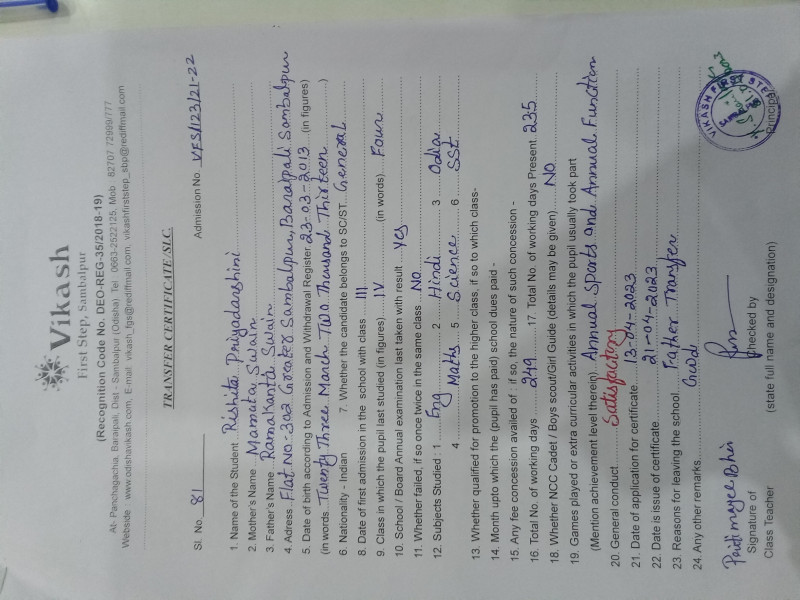 Vikash
First Step, Sambalpur
(Recognition Code No. DEO-REG-35/2018-19)
At- Panchagachia, Baraipali, Dist - Sambalpur (Odisha) Tel: 0663-2522125, Mob : 82707 72999/777
Website : www.odishavikash.com, E-mail: vikash_fgs@rediffmail.com, vikashfirststep_sbp@rediffmail.com
TRANSFER CERTIFICATE/SLC.
Sl. No. 81 Admission No. VFS/123/21-22
1. Name of the Student Rishita Priyadarshini
2. Mother's Name Mamata Swain
3. Father's Name Ramakanta Swain
4. Adress: Flat No-302 Greater Sambalpur, Baraipali Sambalpur
5. Date of birth according to Admission and Withdrawal Register 23-03-2013 (in figures)
(in words Twenty Three March Two Thousand Thirteen )
6. Nationality - Indian 7. Whether the candidate belongs to SC/ST General
8. Date of first admission in the school with class III
9. Class in which the pupil last studied (in figures) IV (in words) Four
10. School / Board Annual examination last taken with result Yes
11. Whether failed, if so once twice in the same class No
12. Subjects Studied : 1 Eng 2 Hindi 3 Odia
4 Maths 5 Science 6 SST
13. Whether qualified for promotion to the higher class, if so to which class-
14. Month upto which the (pupil has paid) school dues paid -
15. Any fee concession availed of : if so, the nature of such concession -
16. Total No. of working days 249 17. Total No. of working days Present 235
18. Whether NCC Cadet / Boys scout/Girl Guide (details may be given) No
19. Games played or extra curricular activities in which the pupil usually took part
(Mention achievement level therein) Annual Sports and Annual Function
20. General conduct Satisfactory
21. Date of application for certificate 13-04-2023
22. Date is issue of certificate 21-04-2023
23. Reasons for leaving the school Father Transfer
24. Any other remarks Good
VIKASH FIRST STEP
Signature of Checked by Principal
Class Teacher (state full name and designation)